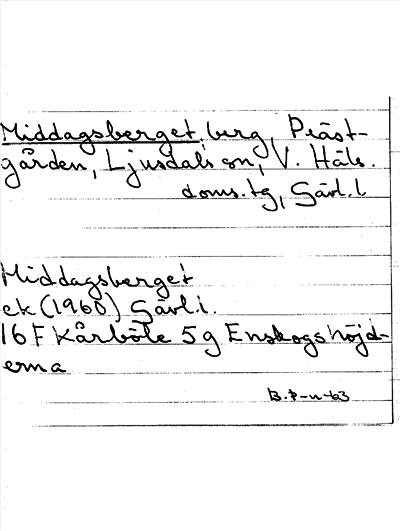 Middagsberget, berg, Präst-
gården, Ljusdals sn, V. Häls.
doms.tg, Gävl.l
Middagsberget
ek (1960) Gävl.l.
16 F Kårböle 5 g Enskogshöjd-
erna
B.P-n-63